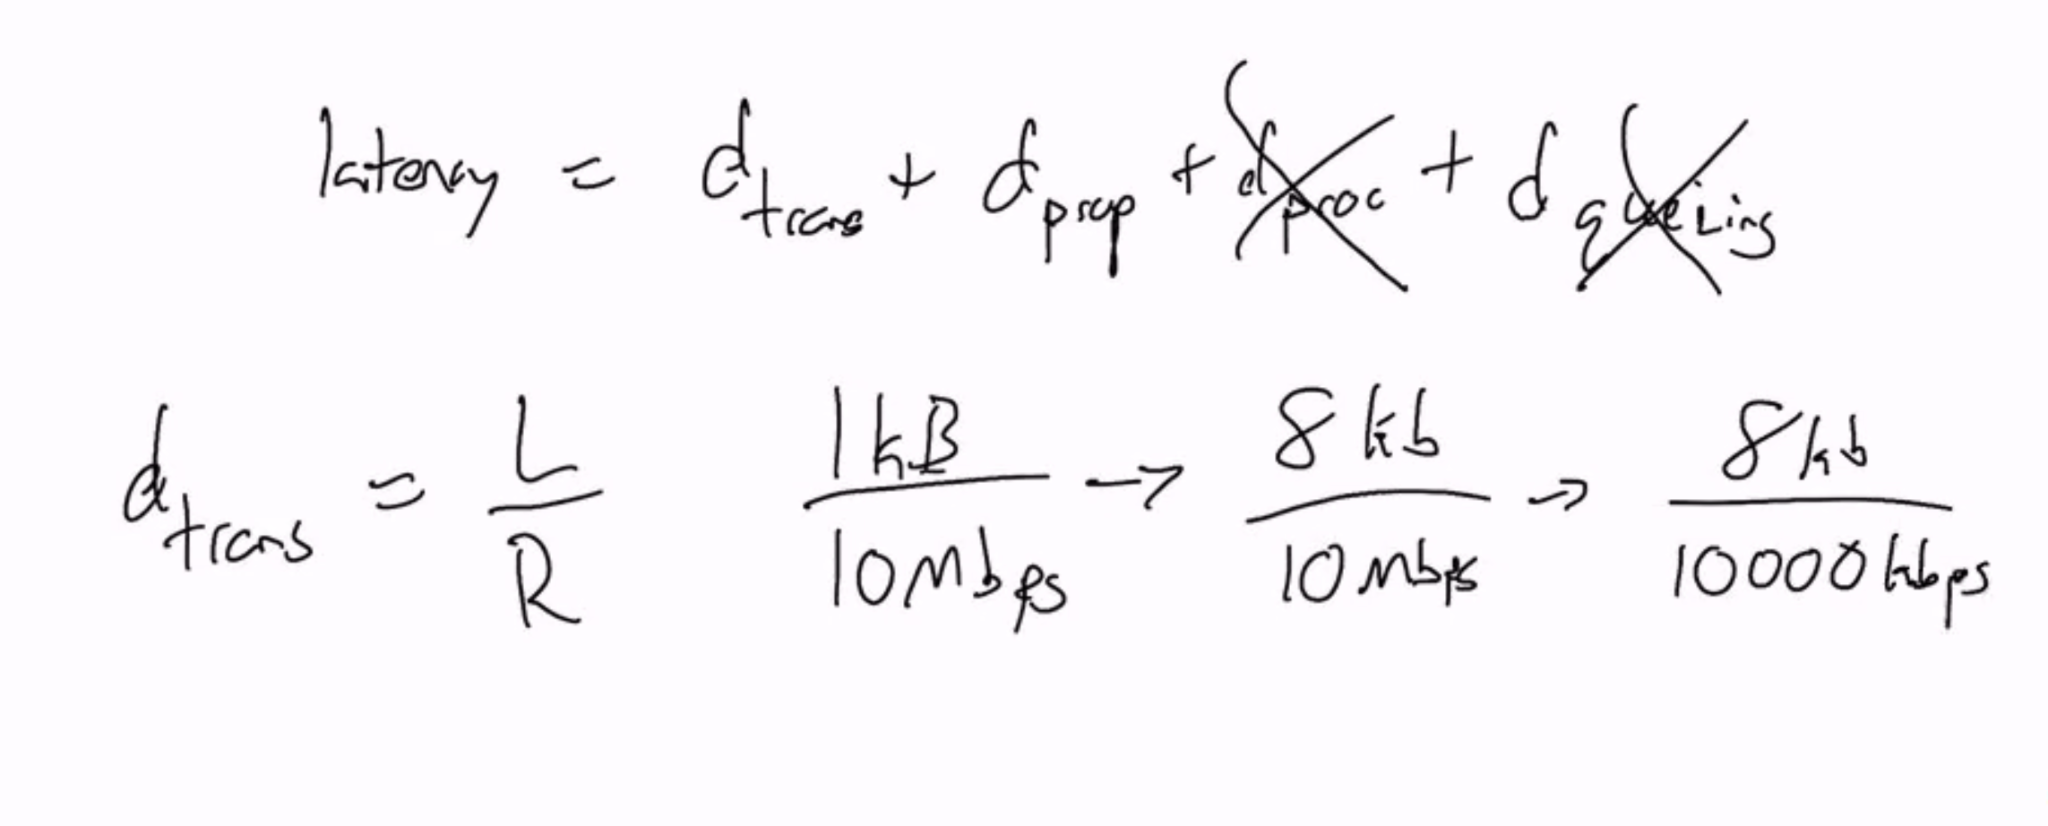 latency = d trans + d prop + d proc + d queiing
d trans = L/R 1kB/10Mbps → 8kb/10Mbps → 8kb/10000kbps